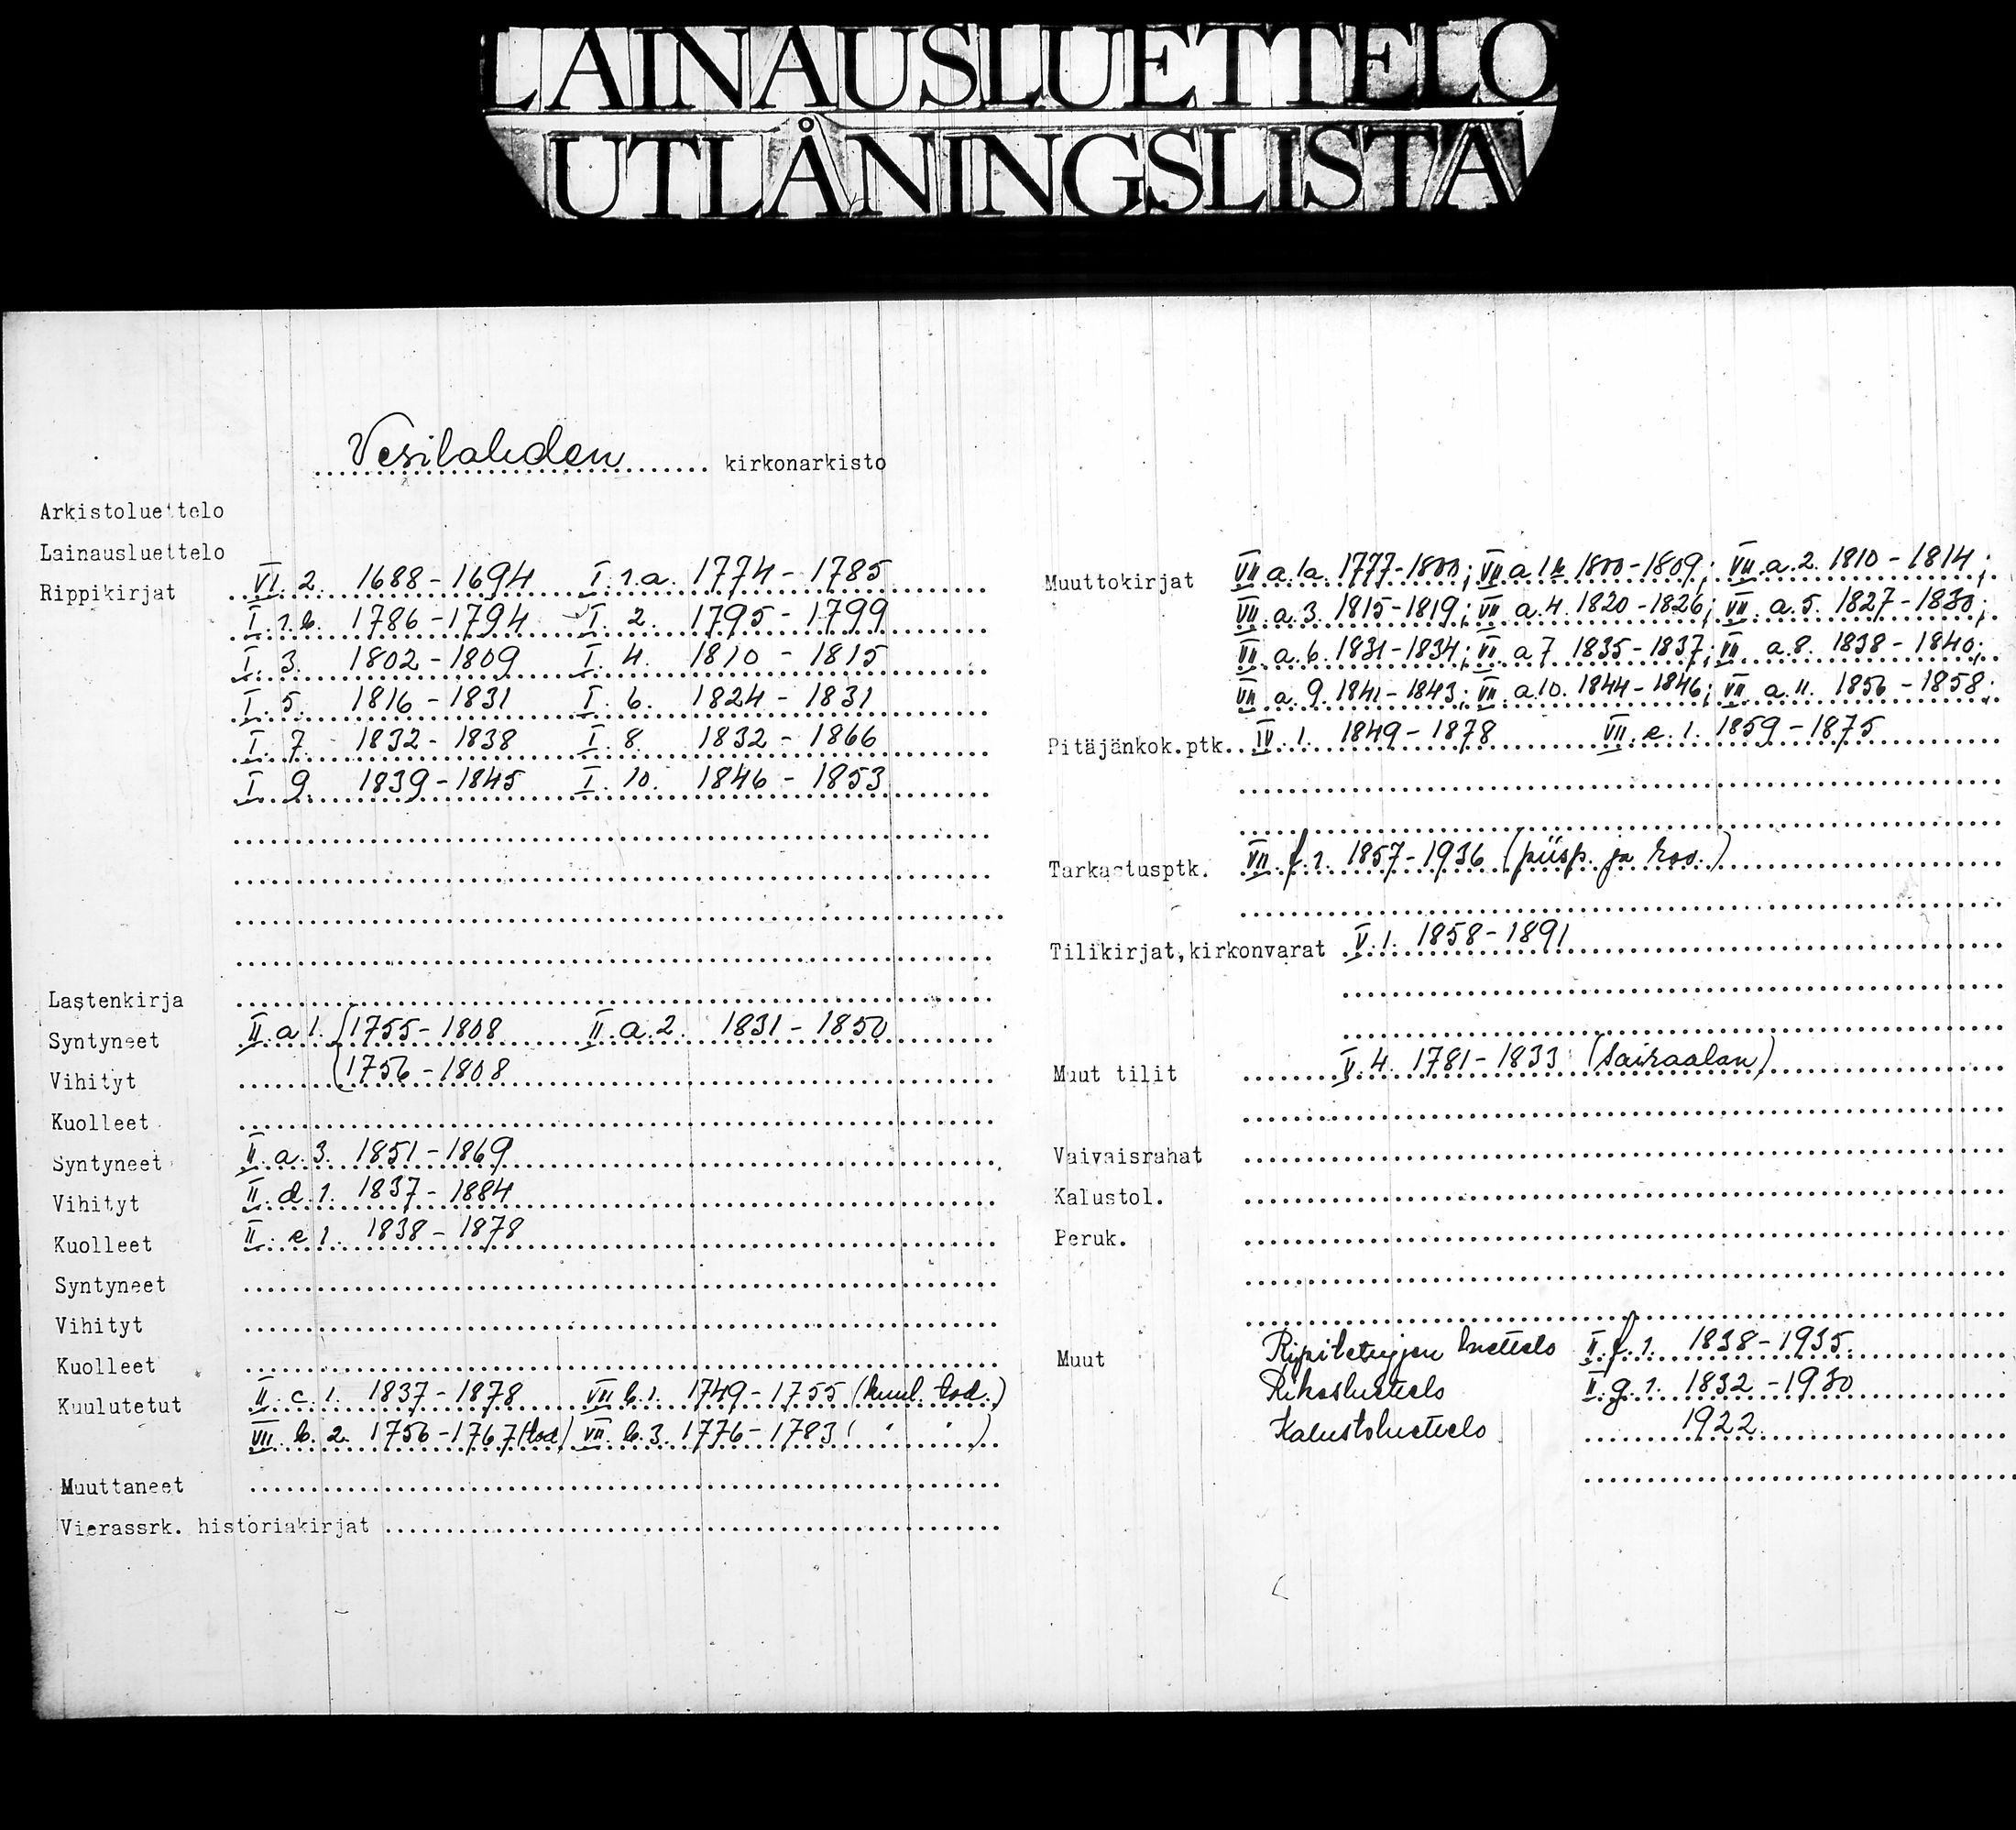 LAINAUSLUETTELO
UTLÅNINGSLISTA
Vesilahden kirkonarkisto
Arkistoluettelo
Lainausluettelo
Rippikirjat VI. 2. 1688-1694 I. 1.a. 1774-1785
I. 1.b. 1786-1794 I. 2. 1795-1799
I. 3. 1802-1809 I. 4. 1810-1815
I. 5. 1816-1831 I. 6. 1824-1831
I. 7. 1832-1838 I. 8. 1832-1866
I. 9. 1839-1845 I. 10. 1846-1853
Lastenkirja
Syntyneet II. a 1. 1755-1808 II. a. 2. 1831-1850
Vihityt 1756-1808
Kuolleet
Syntyneet II. a. 3. 1851-1869
Vihityt II. d. 1. 1837-1884
Kuolleet II. e 1. 1838-1878
Syntyneet
Vihityt
Kuolleet
Kuulutetut II. c. 1. 1837-1878 VII b. 1. 1749-1755 (kuul. tod.)
VII. b. 2. 1756-1767 (tod) VII. b. 3. 1776-1783 ( " " )
Muuttaneet
Vierassrk. historiakirjat
Muuttokirjat VII a. 1a. 1777-1800; VII a 1b 1800-1809; VII. a. 2. 1810-1814;
VII. a. 3. 1815-1819; VII a. 4. 1820-1826; VII. a. 5. 1827-1830;
VII. a. 6. 1831-1834; VII. a 7 1835-1837; VII. a. 8. 1838-1840;
VII a. 9. 1841-1843; VII. a. 10. 1844-1846; VII a. 11. 1856-1858;
Pitäjänkok.ptk. IV. 1. 1849-1878 VII. e. 1. 1859-1875
Tarkastusptk. VII. f. 1. 1857-1936 (piisp. ja rov.)
Tilikirjat,kirkonvarat V. 1. 1858-1891
Muut tilit V. 4. 1781-1833 (Sairaalan)
Vaivaisrahat
Kalustol.
Peruk.
Muut luettelo II. f. 1. 1838-1935.
Rikosluettelo II. g. 1. 1832-1930
Kalustoluettelo 1922